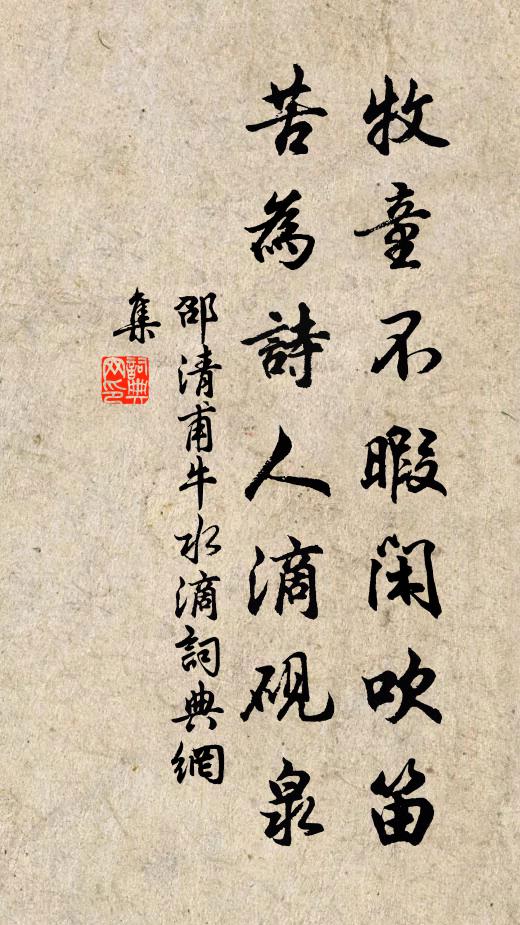 牧童不暇閑吹笛
苦為詩人滴硯泉
邵清甫牛水滴詞典網
集
詞典
网印